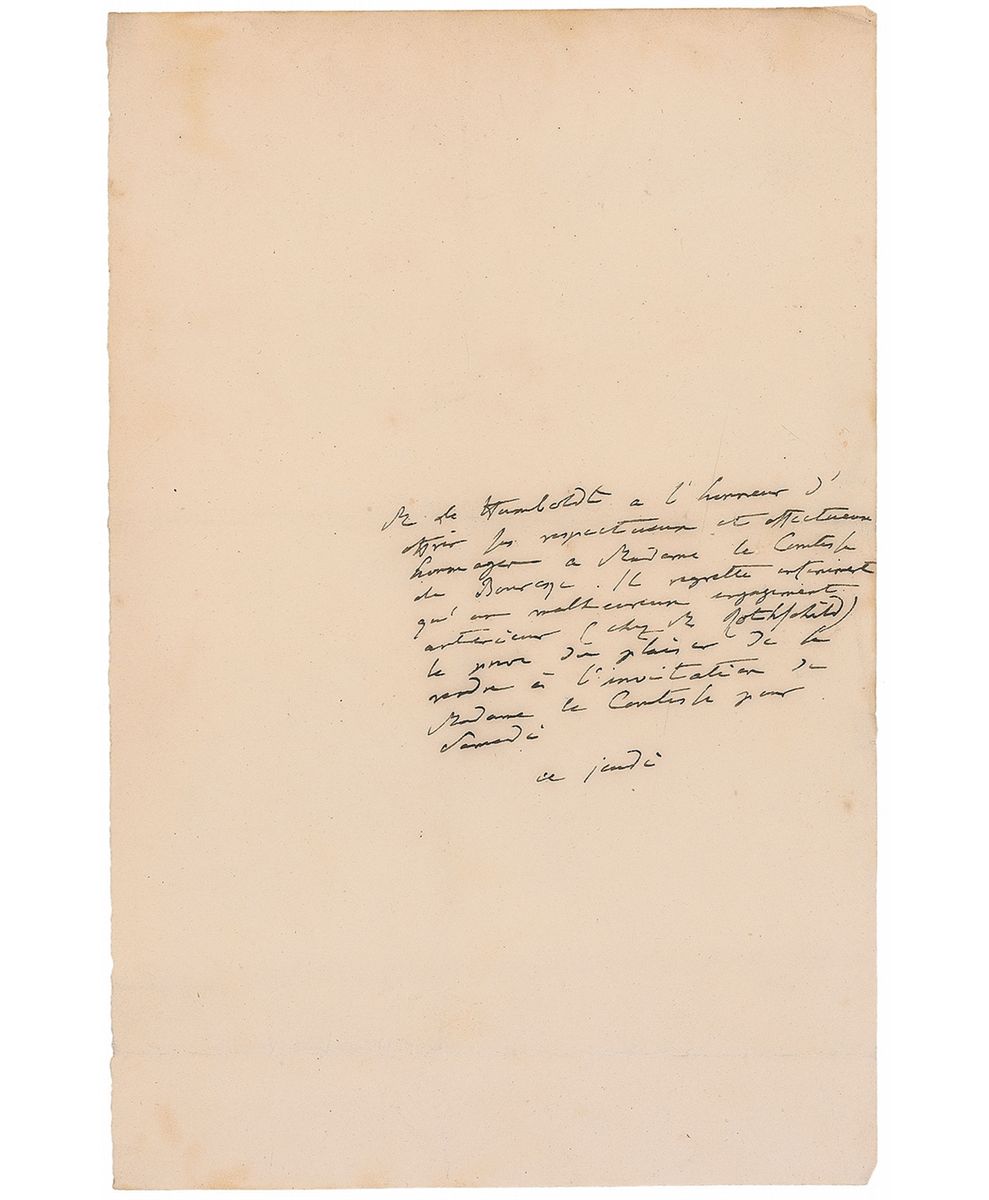 M de Humboldt a l'honneur d'
offrir ses respectueux et affectueux
hommages a Madame la Comtesse
de . Il regrette infiniment
qu'un malheureux engagement
anterieur (chez M Rothschild)
le prive du plaisir de se
rendre à l'invitation de
Madame la Comtesse pour
Samedi
ce jeudi